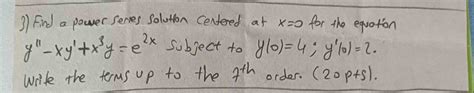 3) Find a power series solution centered at x=0 for the equation
y''-xy'+x³y=e^{2x} subject to y(0)=4; y'(0)=2.
Write the terms up to the 7th order. (20 pts).